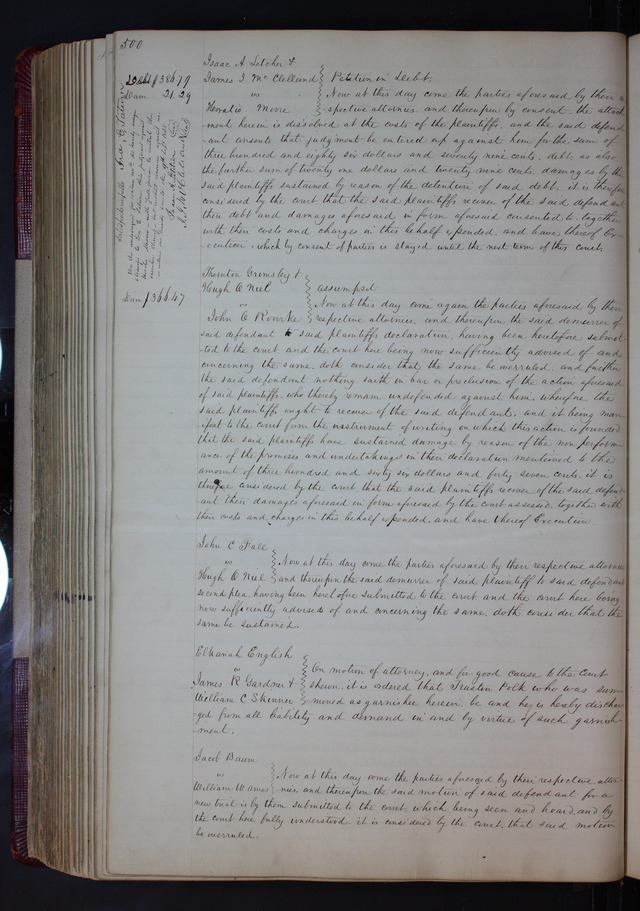 500
Isaac A Letcher &
James I Mc Clelland } Petition in Debt.
vs Now at this day come the parties aforesaid by their re
Horatio Moore -spective attornies, and thereupon by consent the attach
ment herein is dissolved at the costs of the plaintiffs, and the said defend
-ant consents that judgment be entered up against him for the sum of
three hundred and eighty six dollars and seventy nine cents, debt, as also
the further sum of twenty one dollars and twenty nine cents, damages by the
said plaintiffs sustained by reason of the detention of said debt, it is therefore
considered by the court that the said plaintiffs recover of the said defendant
their debt and damages aforesaid in form aforesaid consented to, together
with their costs and charges in this behalf expended, and have thereof Ex-
-ecution, which by consent of parties is stayed until the next term of this court.
Debt $386.79
Dam 21.29
Thornton Grimsley &
Hugh O Neil } assumpsit
vs Now at this day come again the parties aforesaid by their
John O Rourke respective attornies, and thereupon the said demurrer of
said defendant to said plaintiffs declaration, having been heretofore submit
-ted to the court and the court here being now sufficiently advised of and
concerning the same, doth consider that the same be overruled, and further
the said defendant nothing saith in bar or preclusion of the action aforesaid
of said plaintiffs, who thereby remain undefended against him, wherefore the
said plaintiffs ought to recover of the said defendants, and it being man
ifest to the court from the instrument of writing on which this action is founded
that the said plaintiffs have sustained damage by reason of the non perform-
ance of the promises and undertakings in their declaration mentioned to the
amount of three hundred and sixty six dollars and forty seven cents, it is
therefore considered by the court that the said plaintiffs recover of the said defend-
-ant their damages aforesaid in form aforesaid by the court assessed, together with
their costs and charges in this behalf expended, and have thereof Execution.
Dam $366.47
John C Fall
vs } Now at this day come the parties aforesaid by their respective attornies
Hugh O Neil and thereupon the said demurrer of said plaintiff to said defendants
second plea, having been heretofore submitted to the court and the court here being
now sufficiently advised of and concerning the same, doth consider that the
same be sustained.
Elkanah English
vs } On motion of attorney, and for good cause to the court
James R Gardner & shown, it is ordered that Trusten Polk who was sum-
William C Skinner moned as garnishee herein, be and he is hereby dischar
ged from all liability and demand in and by virtue of such garnish
-ment.
Jacob Baum
vs } Now at this day come the parties aforesaid by their respective attor-
William W nies, and thereupon the said motion of said defendant for a
new trial is by them submitted to the court, which being seen and heard, and by
the court here fully understood it is considered by the court, that said motion
be overruled.